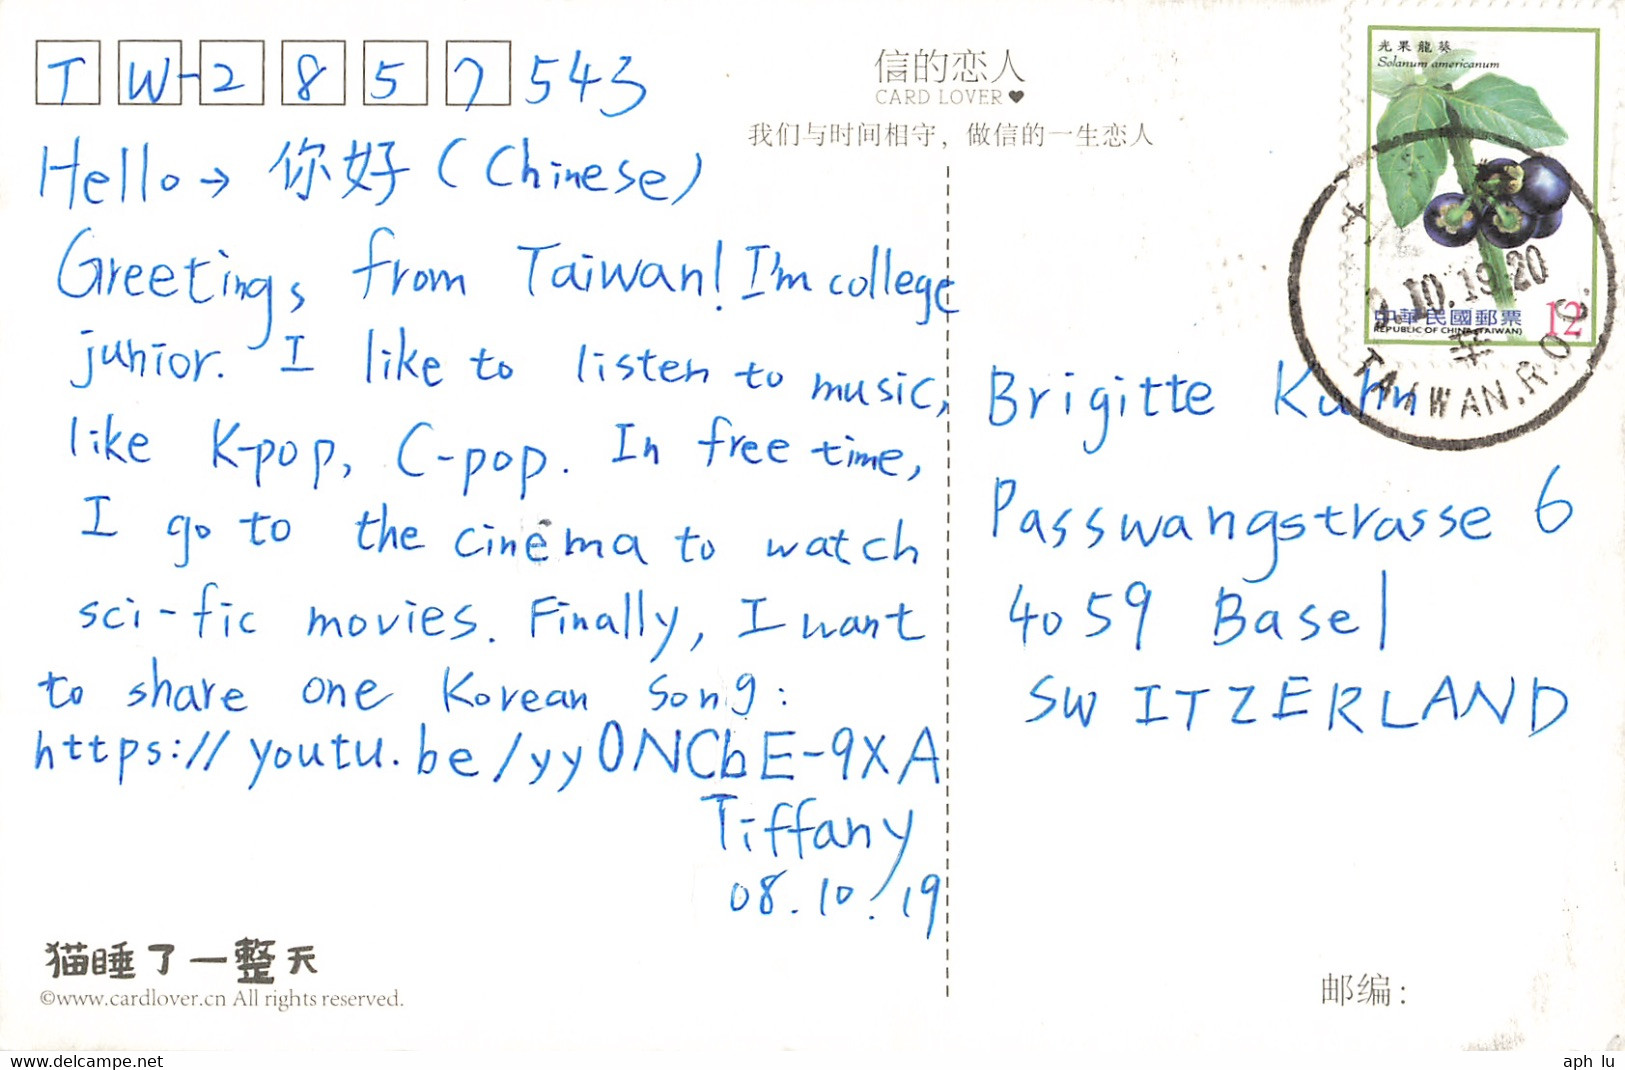 TW-2857543
Hello → 你好 (Chinese)
Greetings from Taiwan! I'm college
junior. I like to listen to music,
like K-pop, C-pop. In free time,
I go to the cinema to watch
sci-fic movies. Finally, I want
to share one Korean song:
https://youtu.be/yy0NCbE-9XA
Tiffany
08.10.19
猫睡了一整天
©www.cardlover.cn All rights reserved.
信的恋人
CARD LOVER♥
我们与时间相守，做信的一生恋人
光果龍葵
Solanum americanum
中華民國郵票
REPUBLIC OF CHINA (TAIWAN)
12
.10.19.20
TAIWAN.R.O.C.
Brigitte Kuhn
Passwangstrasse 6
4059 Basel
SWITZERLAND
邮编：
www.delcampe.net
aph lu